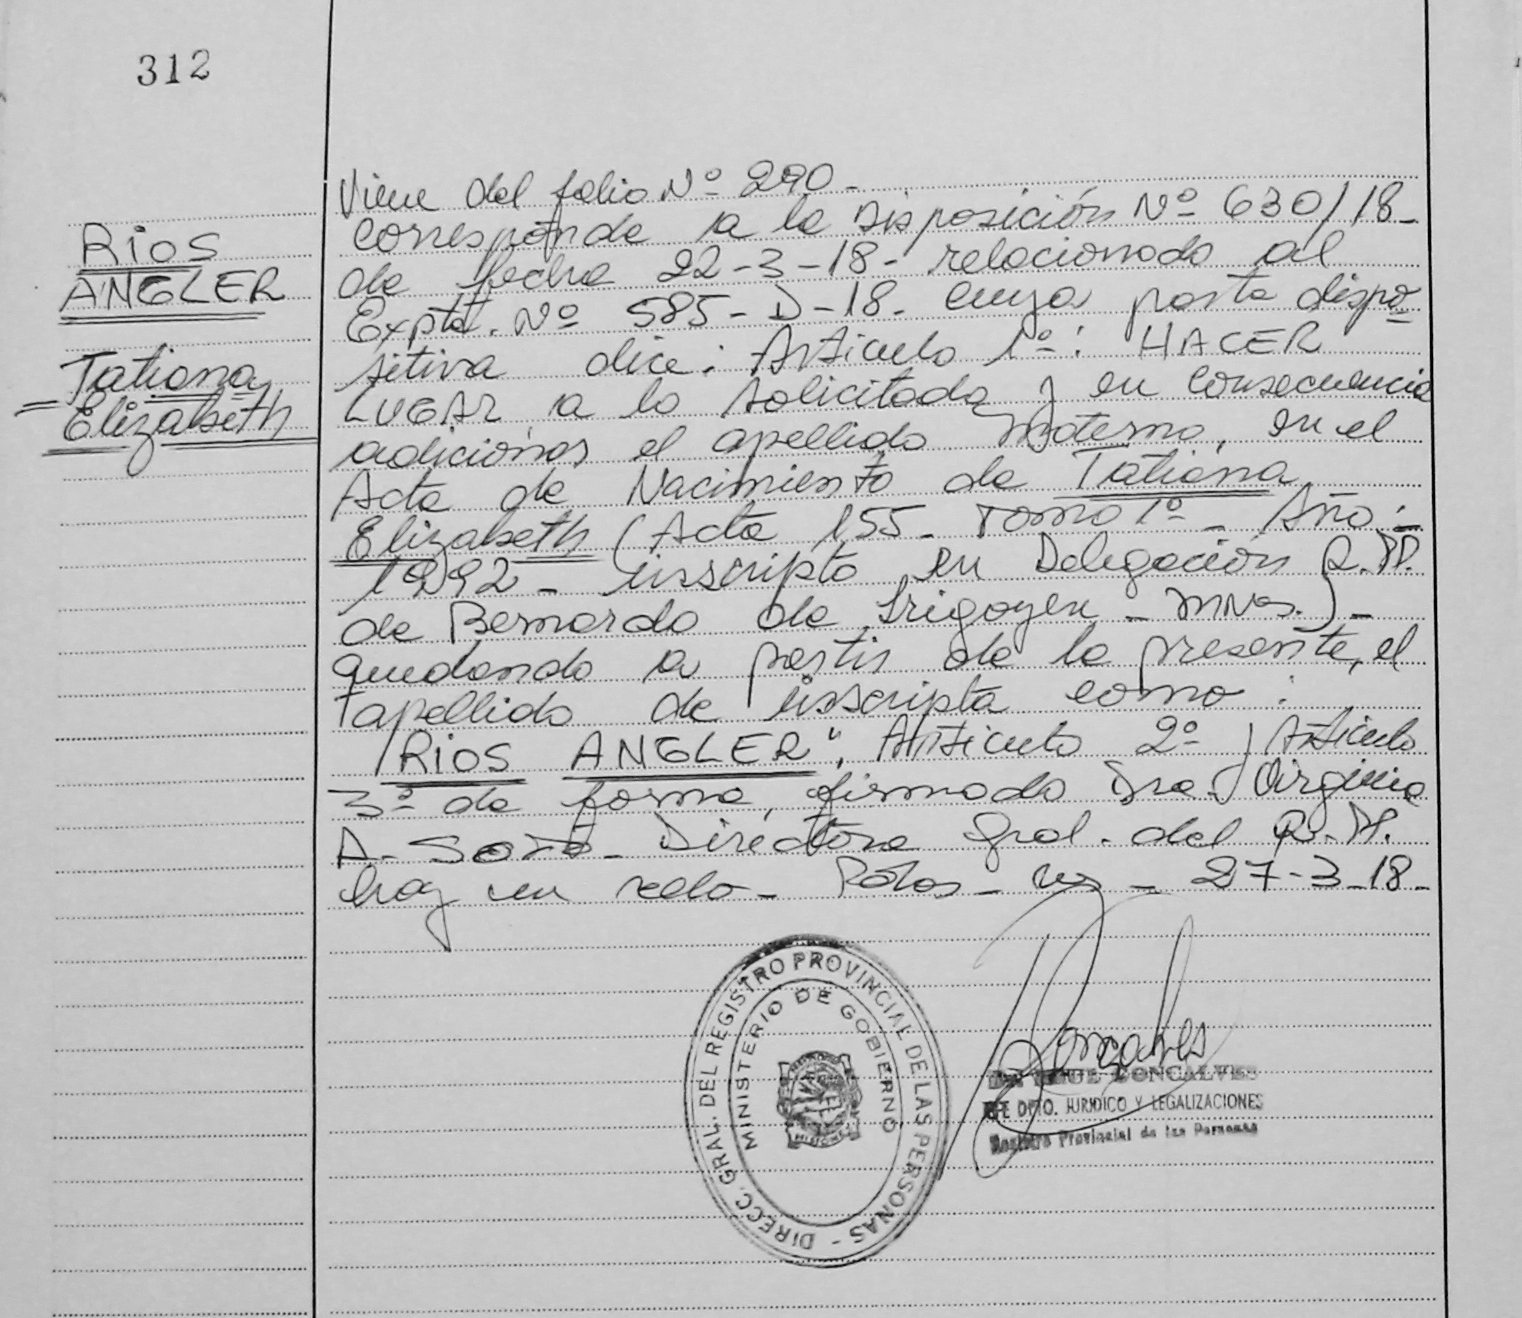 312
RIOS
ANGLER
Tatiana
Elizabeth
Viene del folio Nº 290.-
corresponde a la Disposición Nº 630/18-
de fecha 22-3-18- relacionado al
Expte. Nº 585- D-18- cuya parte dispo
sitiva dice: Artículo 1º: HACER
LUGAR a lo solicitado y en consecuencia
adicionar el apellido materno, en el
Acta de Nacimiento de Tatiana
Elizabeth (Acta 155- Tomo 1º- Año:-
1992- inscripta en Delegación R.P.
de Bernardo de Irigoyen - Mnes.)-
quedando a partir de la presente, el
apellido de inscripta como:
"RIOS ANGLER". Artículo 2º y Artículo
3º de forma, firmado Dra. Virginia
A. Soto- Directora Gral. del R.P.
hay un sello- Pdas- 27-3-18-
DIRECC. GRAL. DEL REGISTRO PROVINCIAL DE LAS PERSONAS -
MINISTERIO DE GOBIERNO
MISIONES
Goncalves
GONCALVES
DPTO. JURIDICO Y LEGALIZACIONES
Registro Provincial de las Personas